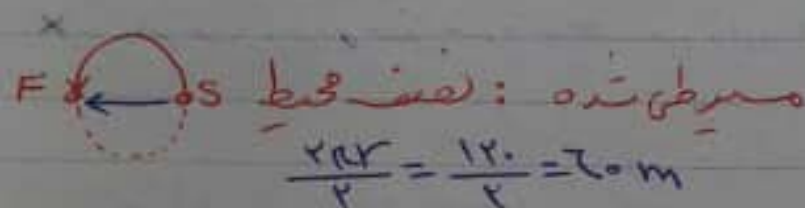 F S مسیر طی شده : نصف محیط
۲πr/۲ = ۱۲۰/۲ = ۶۰ m